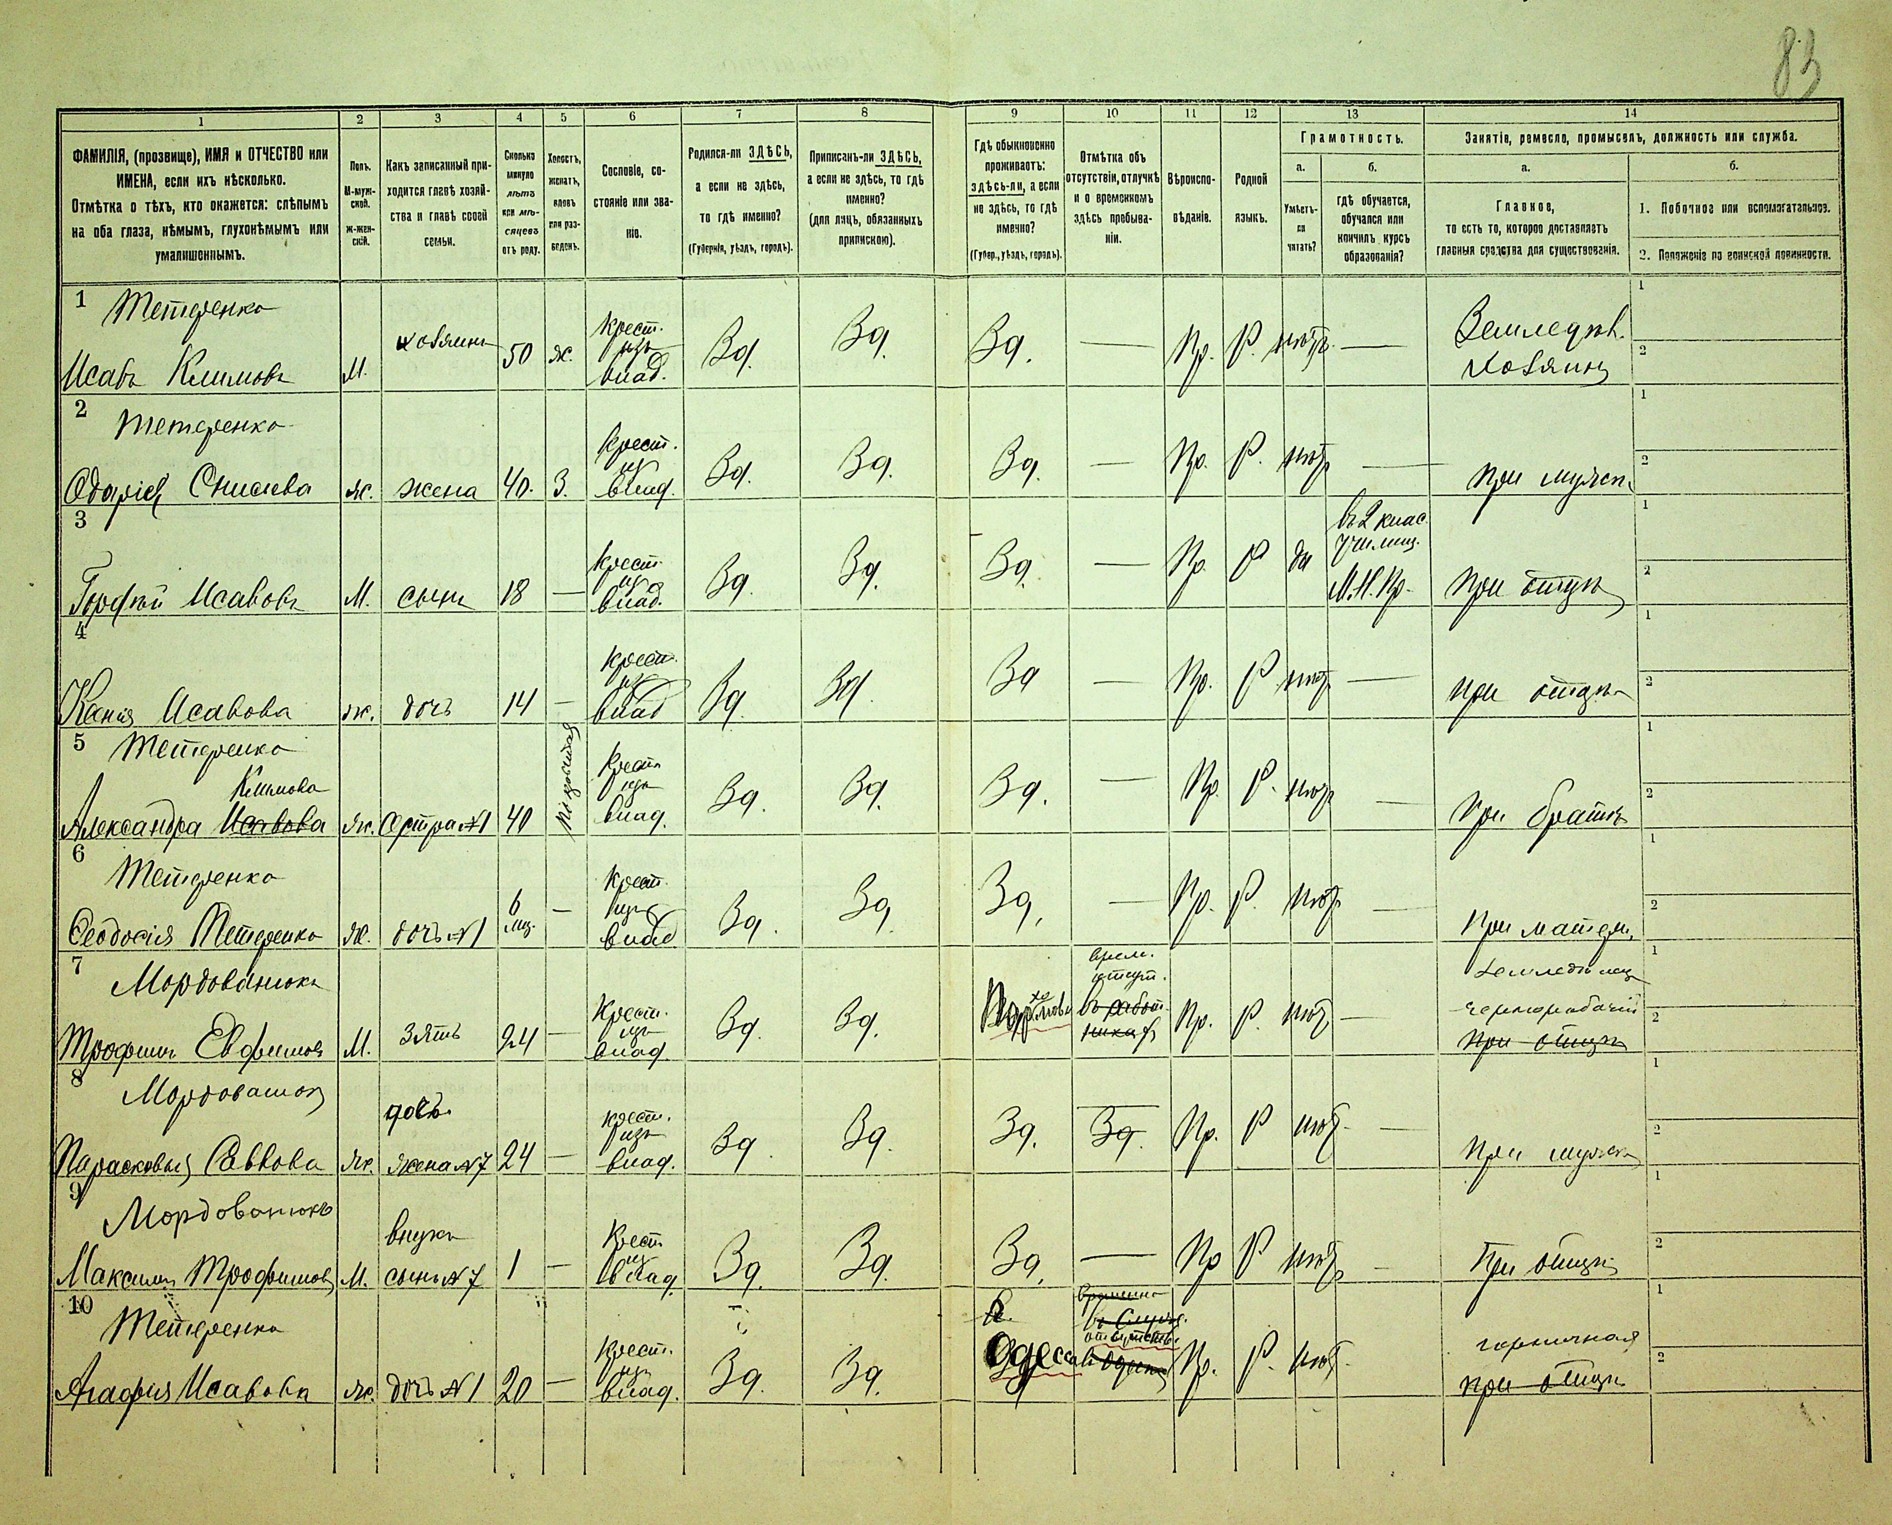 83
1 2 3 4 5 6 7 8 9 10 11 12 13 14
ФАМИЛІЯ, (прозвище), ИМЯ и ОТЧЕСТВО или
ИМЕНА, если ихъ нѣсколько.
Отмѣтка о тѣхъ, кто окажется: слѣпымъ
на оба глаза, нѣмымъ, глухонѣмымъ или
умалишеннымъ.
Полъ.
М-муж-
ской.
Ж-жен-
скій.
Какъ записанный при-
ходится главѣ хозяй-
ства и главѣ своей
семьи.
Сколько
минуло
лѣтъ
или мѣ-
сяцевъ
отъ роду.
Холостъ,
женатъ,
вдовъ
или раз-
веденъ.
Сословіе, со-
стояніе или зва-
ніе.
Родился-ли ЗДѢСЬ,
а если не здѣсь,
то гдѣ именно?
(Губернія, уѣздъ, городъ).
Приписанъ-ли ЗДѢСЬ,
а если не здѣсь, то гдѣ
именно?
(для лицъ, обязанныхъ
припискою).
Гдѣ обыкновенно
проживаетъ:
здѣсь-ли, а если
не здѣсь, то гдѣ
именно?
(Губер., уѣздъ, городъ).
Отмѣтка объ
отсутствіи, отлучкѣ
и о временномъ
здѣсь пребыва-
ніи.
Вѣроиспо-
вѣданіе.
Родной
языкъ.
Грамотность.
а.
Умѣетъ-
ли
читать?
б.
гдѣ обучается,
обучался или
кончилъ курсъ
образованія?
Занятія, ремесло, промыселъ, должность или служба.
а.
Главное,
то есть то, которое доставляетъ
главныя средства для существованія.
б.
1. Побочное или вспомогательное.
2. Положеніе по воинской повинности.
1 Тетеренко
Исавъ Климовъ М. хозяинъ 50 ж. Крест. изъ влад. Зд. Зд. Зд. — Пр. Р. нѣтъ — Земледѣл. Хозяинъ
2 Тетеренко
Одарія ж. жена 40. З. Крест. из влад. Зд. Зд. Зд. — Пр. Р. нѣтъ — при мужѣ
3
Гордѣй Исавовъ М. сынъ 18 — Крест. из влад. Зд. Зд. Зд. — Пр. Р да въ 2 клас. училищ. М.Н.Пр. при отцѣ
4
Исавова ж. дочь 14 — Крест. из влад Зд. Зд. Зд — Пр. Р нѣтъ — при отцѣ
5 Тетеренко
Климова
Александра Исавова ж. сестра №1 40 Крест. изъ влад. Зд. Зд. Зд. — Пр. Р. нѣтъ — при братѣ
6 Тетеренко
Феодосія Тетеренко ж. дочь №1 6 мѣ. — Крест. изъ влад Зд. Зд. Зд. — Пр. Р. нѣтъ — при матери
7 Мордованюкъ
Трофимъ Евфимовъ М. зять 24 — Крест. изъ влад. Зд. Зд. врем. отсут. въ работникахъ Пр. Р. нѣтъ — земледѣлец чернорабочій при отцѣ
8 Мордованюкъ
Парасковья Саввова ж. дочь жена №7 24 — крест. изъ влад. Зд. Зд. Зд. Зд. Пр. Р нѣтъ — при мужѣ
9 Мордованюкъ
Максимъ Трофимовъ М. внукъ сынъ №7 1 — Крест из влад. Зд. Зд. Зд. — Пр Р нѣтъ — при отцѣ
10 Тетеренко
Агафия Исавова ж. дочь №1 20 — Крест. из влад. Зд. Зд. Одесса временно отсутств. въ Одессѣ Пр. Р. нѣтъ — горничная при отцѣ